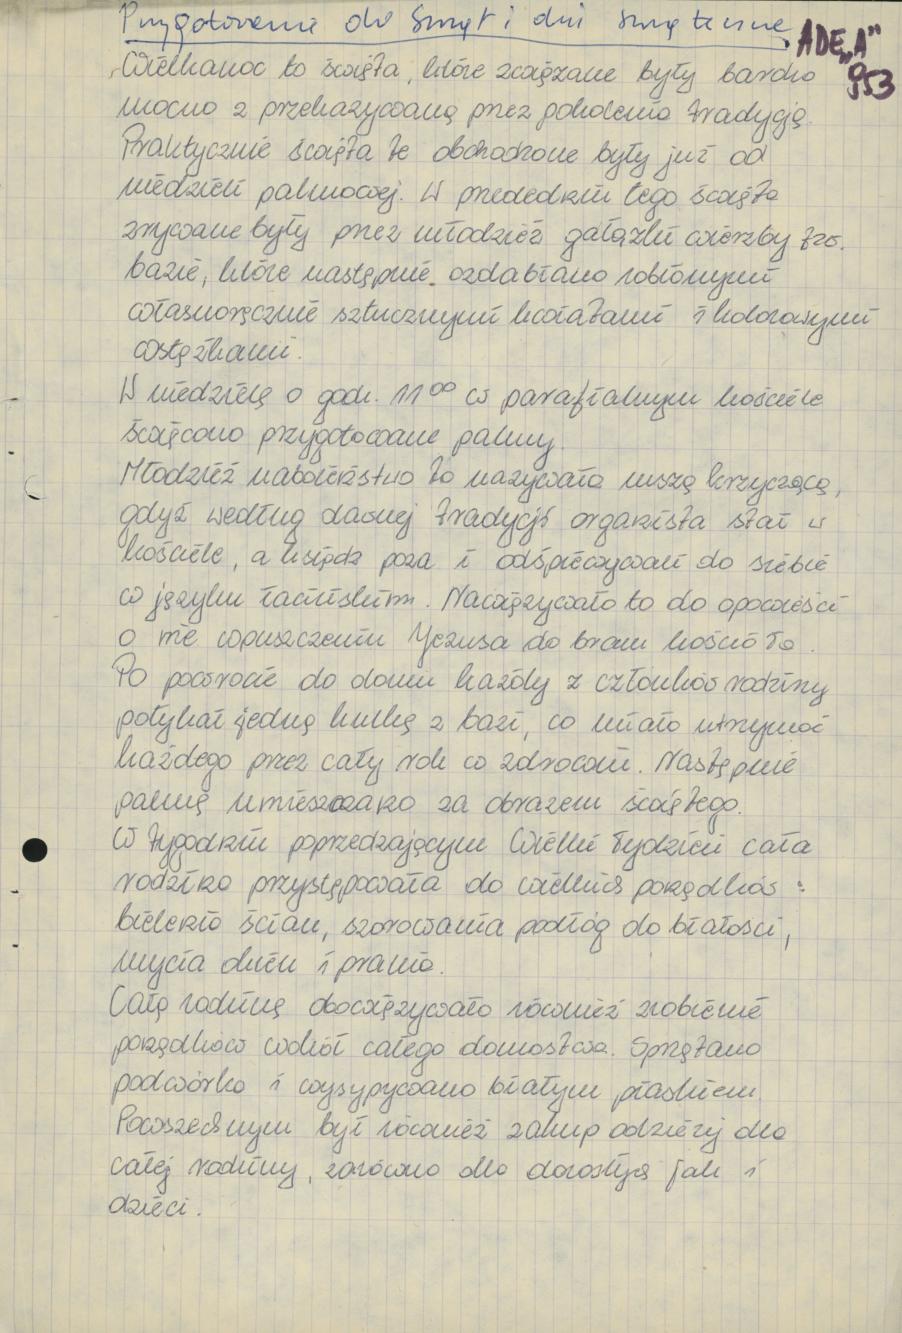 Przygotowanie do świąt i dni świąteczne
ADE „A"
953
Wielkanoc to święta, które związane były bardzo
mocno z przekazywaną przez pokolenia tradycją.
Praktycznie święta te obchodzone były już od
niedzieli palmowej. W przededniu tego święta
zrywane były przez młodzież gałązki wierzby tzw.
bazie, które następnie ozdabiano robionymi
własnoręcznie sztucznymi kwiatami i kolorowymi
wstążkami.
W niedzielę o godz. 11⁰⁰ w parafialnym kościele
święcono przygotowane palmy.
Młodzież nabożeństwo to nazywała mszą krzyczącą,
gdyż według dawnej tradycji organista stał w
kościele, a ksiądz poza i odśpiewywali do siebie
w języku łacińskim. Nawiązywało to do opowieści
o nie wpuszczeniu Jezusa do bram kościoła.
Po powrocie do domu każdy z członków rodziny
połykał jedną kulkę z bazi, co miało utrzymać
każdego przez cały rok w zdrowiu. Następnie
palmę umieszczano za obrazem świętego.
W tygodniu poprzedzającym Wielki Tydzień cała
rodzina przystępowała do wielkich porządków:
bielenia ścian, szorowania podłóg do białości,
mycia okien i prania.
Całą rodzinę obowiązywało również zrobienie
porządków wokół całego domostwa. Sprzątano
podwórko i wysypywano białym piaskiem.
Powszechnym był również zakup odzieży dla
całej rodziny, zarówno dla dorosłych jak i
dzieci.